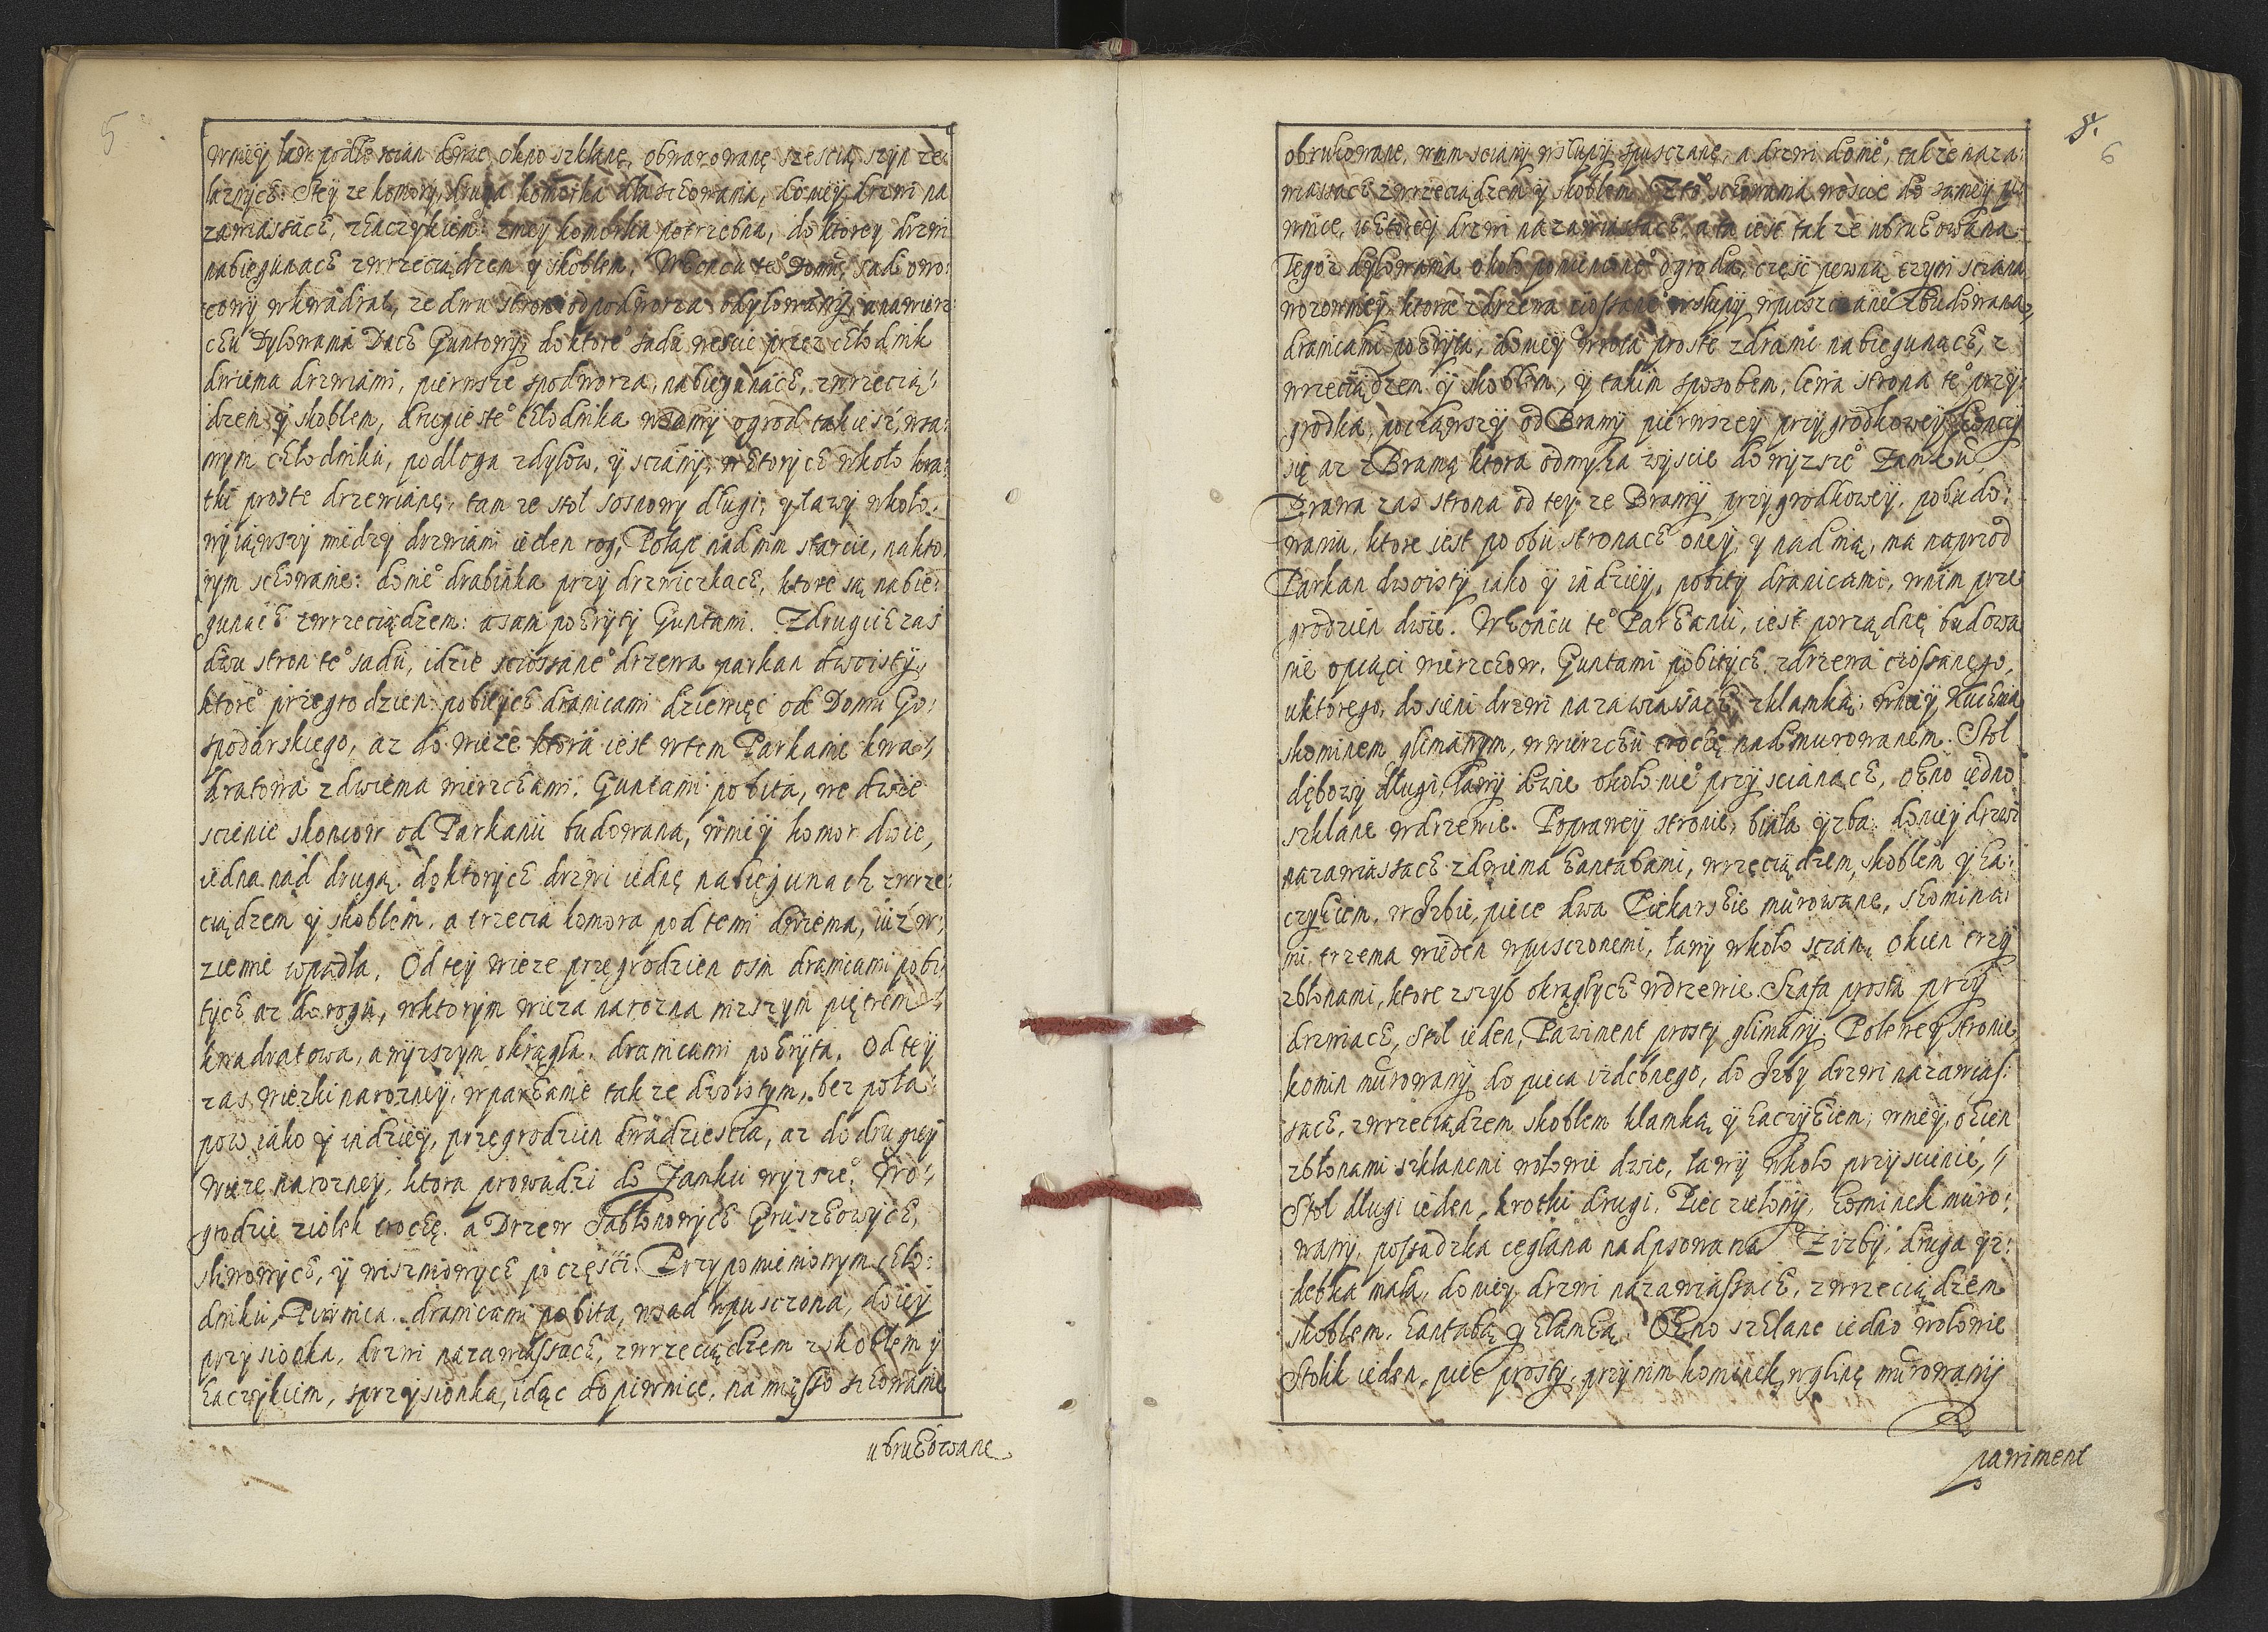 5
wniey ław podle scian dwie, okno szklanę, obwarowanę sześcią szyn że:
laznych. Stey ze komory, druga komorka dla schowania, do niey drzwi na
zawiassach, zhaczykiem. Zniey komorka potrzebna, do ktorey drzwi
nabiegunach zwrzeciądzem y skoblem. Wkoncu te° Domu, sad owo:
cowy wkwadrat, ze dwu stron od podworza odylowany, a nawierz:
chu Dylowania Dach Guntowy, do ktore° sadu weście przez chłodnik
dwiema drzwiami, pierwsze spodworza, nabiegunach, zwrzecią:
dzem y skoblem, drugie ste° chłodnika wsamy ogrod takiesz, wsa:
mym chłodniku, podłoga zdylow, y sciany, wktorych wkoło kra:
tki proste drzewianę, tam ze stoł sosnowy długi, y ławy wkoło,
wyiąwszy miedzy drzwiami ieden rog, Połap nadnim starcic, nakto:
rym schowanie: do nie° drabinka przy drzwiczkach, ktore są nabie:
gunach zwrzeciądzem: a sam pokryty Guntami. Zdrugich zaś
dwu stron te° sadu, idzie sciossane° drzewa parkan dwoisty,
ktore° przegrodzien pobitych dranicami dziewięć od Domu Go:
spodarskiego, az do wieże ktora iest wtem Parkanie kwa:
dratowa zdwiema wierzchami, Guntami pobita, we dwie
scienie skoncow od Parkanu budowana, wniey komor dwie,
iedna nad drugą, do ktorych drzwi iednę nabiegunach zwrze:
ciądzem y skoblem, a trzecia komora pod temi dwiema, iuż w:
ziemię wpadła. Od tey wieże przegrodzien ośm dranicami pobi:
tych az do rogu, wktorym wieza narozna niższym piętrem
kwadratowa, a wyższym okrągła, dranicami pokryta. Od tey
zas wiezki narozney, wparkanie takze dwoistym, bez poła:
pow iako y indziey, przegrodzien dwadziescia, az do drugiey
wieze narozney, ktora prowadzi do Zamku wyzsze°. Wo:
grodzie ziolek trochę, a Drzew Jabłonowych Gruszkowych,
sliwowych, y wiszniowych po części. Przypomienionym chło:
dniku, Piwnica dranicami pobita, wsad wpusczona, do iey
przysionka, drzwi nazawiassach, zwrzeciądzem zskoblem y
haczykiem, sprzysionka, idąc do piwnice, na mięsso schowanie
ubrukowane
8.
6
obrukowane, wnim sciany wslupy spusczanę, a drzwi do nie°, takze naza:
wiassach zwrzeciądzem y skoblem. Zte° schowania wescie do samey pi:
wnice, uktorey drzwi nazawiassach, a ta iest takze ubrukowana
Tegoż dylowania około pomienione° ogroda, część pewną czyni sciana
wozowniey, ktora zdrzewa ciossane° wslupy wpusczane° zbudowana,
dranicami pokryta, do niey wrota proste zdrzwi nabiegunach, z
wrzeciądzem y skoblem, y takim sposobem, lewa strona te° przy:
grodka, począwszy od Bramy pierwszey przygrodkowey, konczy
się az zBramą ktora odmyka wyscie do wyzsze° Zamku.
Prawa zas strona od tey ze Bramy przygrodkowey, pobudo:
waniu, ktore iest po obu stronach oney, y nad nią, ma naprzod
Parkan dwoisty iako y indziey, pobity dranicami, wnim prze
grodzien dwie. Wkoncu te° Parkanu, iest porządnę budowa
nie opiąci wierzchow, Guntami pobitych zdrzewa ciossanego,
uktorego, do sieni drzwi nazawiassach zklamką, wniey Kuchnia
skominem glinianym, wwierzchu trochę nadmurowanem. Stoł
dębowy długi, ławy dwie około nie° przy scianach, okno iedno
szklane wdrzewie. Poprawey stronie, biała yzba, do niey drzwi
nazawiassach zdwiema hantabami, wrzeciądzem, skoblem y ha:
czykiem, wJzbie, piece dwa Piekarskie murowane, skomina:
mi trzema wieden wpusczonemi, ławy wkoło scian, okien trzy
zbłonami, ktore zszyb okrągłych wdrzewie. Szafa prosta przy
drzwiach, stoł ieden, Pawiment prosty gliniany. Polewey stronie,
komin murowany do pieca izdebnego, do Jzby drzwi nazawias:
sach, zwrzeciądzem skoblem klamką y haczykiem, wniey, okien
zbłonami szklanemi wołowie dwie, ławy wkoło przy scienie,
Stoł długi ieden, krotki drugi, Piec zielony, kominek muro:
wany, possadzka ceglana nadpsowana. Zizby, druga yz:
debka mała, do niey drzwi nazawiassach, zwrzeciądzem
skoblem, hantabą y klamką. Okno szklane iedno wołowie
Stolik ieden, piec prosty, przy nim kominek, wglinę murowany
pawiment